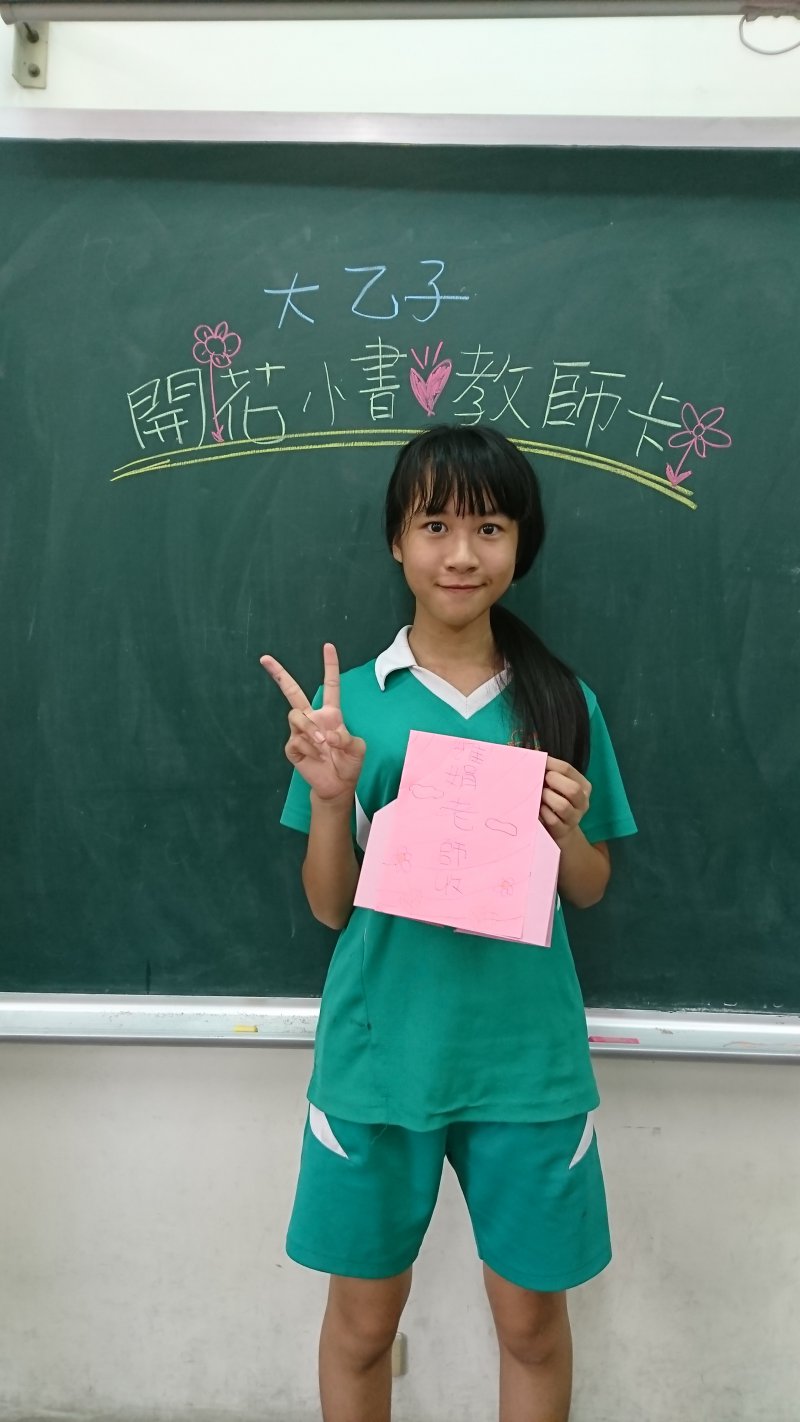 大乙子
開花小書教師卡
老師收